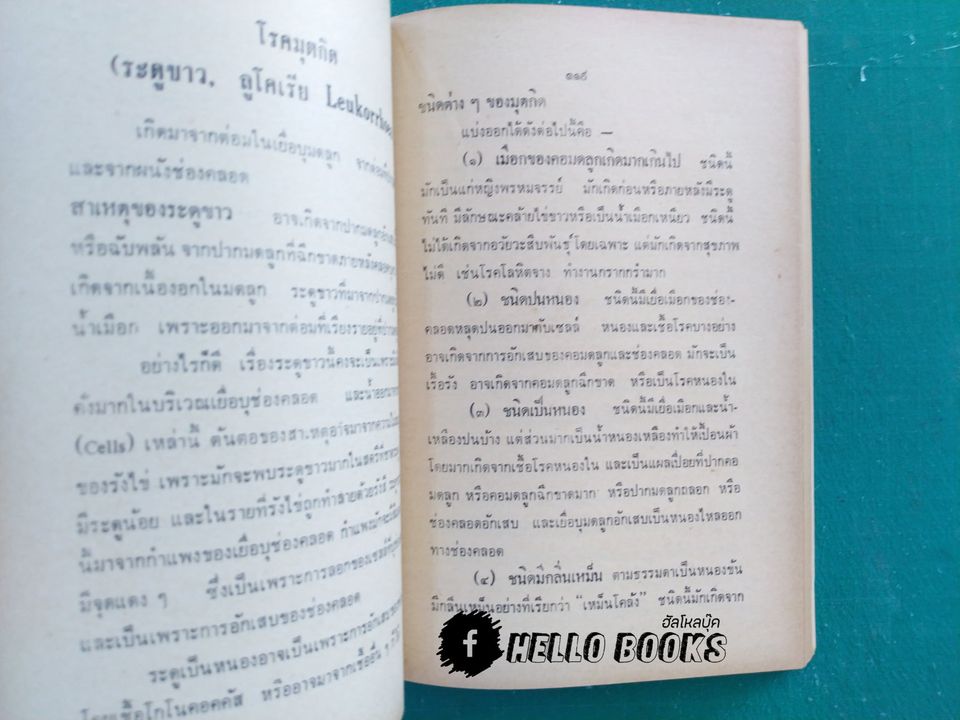 โรคมุตกิด
(ระดูขาว, ลูโคเรีย Leukorrhoea
เกิดมาจากต่อมในเยื่อบุมดลูก
และจากผนังช่องคลอด
สาเหตุของระดูขาว อาจเกิดจากปากมดลูกอักเสบ
หรือฉับพลัน จากปากมดลูกที่ฉีกขาดภายหลังคลอด
เกิดจากเนื้องอกในมดลูก ระดูขาวที่มาจากปากมดลูก
น้ำเมือก เพราะออกมาจากต่อมที่เรียงรายอยู่
อย่างไรก็ดี เรื่องระดูขาวนี้คงจะเป็นเพราะ
คั่งมากในบริเวณเยื่อบุช่องคลอด และน้ำ
(Cells) เหล่านี้ ต้นตอของสาเหตุอาจมาจากความ
ของรังไข่ เพราะมักจะพบระดูขาวมากในสตรีที่
มีระดูน้อย และในรายที่รังไข่ถูกทำลายด้วยรังสี
นี้มาจากกำแพงของเยื่อบุช่องคลอด กำแพงมักจะ
มีจุดแดง ๆ ซึ่งเป็นเพราะการลอกของเซลล์
และเป็นเพราะการอักเสบของช่องคลอด
ระดูเป็นหนองอาจเป็นเพราะการอักเสบ
โดยเชื้อโกโนคอคคัส หรืออาจมาจากเชื้ออื่น ๆ ก็
๑๑๙
ชนิดต่าง ๆ ของมุตกิด
แบ่งออกได้ดังต่อไปนี้คือ —
(๑) เมือกของคอมดลูกเกิดมากเกินไป ชนิดนี้
มักเป็นแก่หญิงพรหมจรรย์ มักเกิดก่อนหรือภายหลังมีระดู
ทันที มีลักษณะคล้ายไข่ขาวหรือเป็นน้ำเมือกเหนียว ชนิดนี้
ไม่ได้เกิดจากอวัยวะสืบพันธุ์โดยเฉพาะ แต่มักเกิดจากสุขภาพ
ไม่ดี เช่นโรคโลหิตจาง ทำงานกรากกรำมาก
(๒) ชนิดปนหนอง ชนิดนี้มีเยื่อเมือกของช่อง-
คลอดหลุดปนออกมากับเซลล์ หนองและเชื้อโรคบางอย่าง
อาจเกิดจากการอักเสบของคอมดลูกและช่องคลอด มักจะเป็น
เรื้อรัง อาจเกิดจากคอมดลูกฉีกขาด หรือเป็นโรคหนองใน
(๓) ชนิดเป็นหนอง ชนิดนี้มีเยื่อเมือกและน้ำ-
เหลืองปนบ้าง แต่ส่วนมากเป็นน้ำหนองเหลืองทำให้เปื้อนผ้า
โดยมากเกิดจากเชื้อโรคหนองใน และเป็นแผลเปื่อยที่ปากคอ
มดลูก หรือคอมดลูกฉีกขาดมาก หรือปากมดลูกถลอก หรือ
ช่องคลอดอักเสบ และเยื่อบุมดลูกอักเสบเป็นหนองไหลออก
ทางช่องคลอด
(๔) ชนิดมีกลิ่นเหม็น ตามธรรมดาเป็นหนองข้น
มีกลิ่นเหม็นอย่างที่เรียกว่า “เหม็นโคล้ง” ชนิดนี้มักเกิดจาก
ฮัลโหลบุ๊ค
f HELLO BOOKS